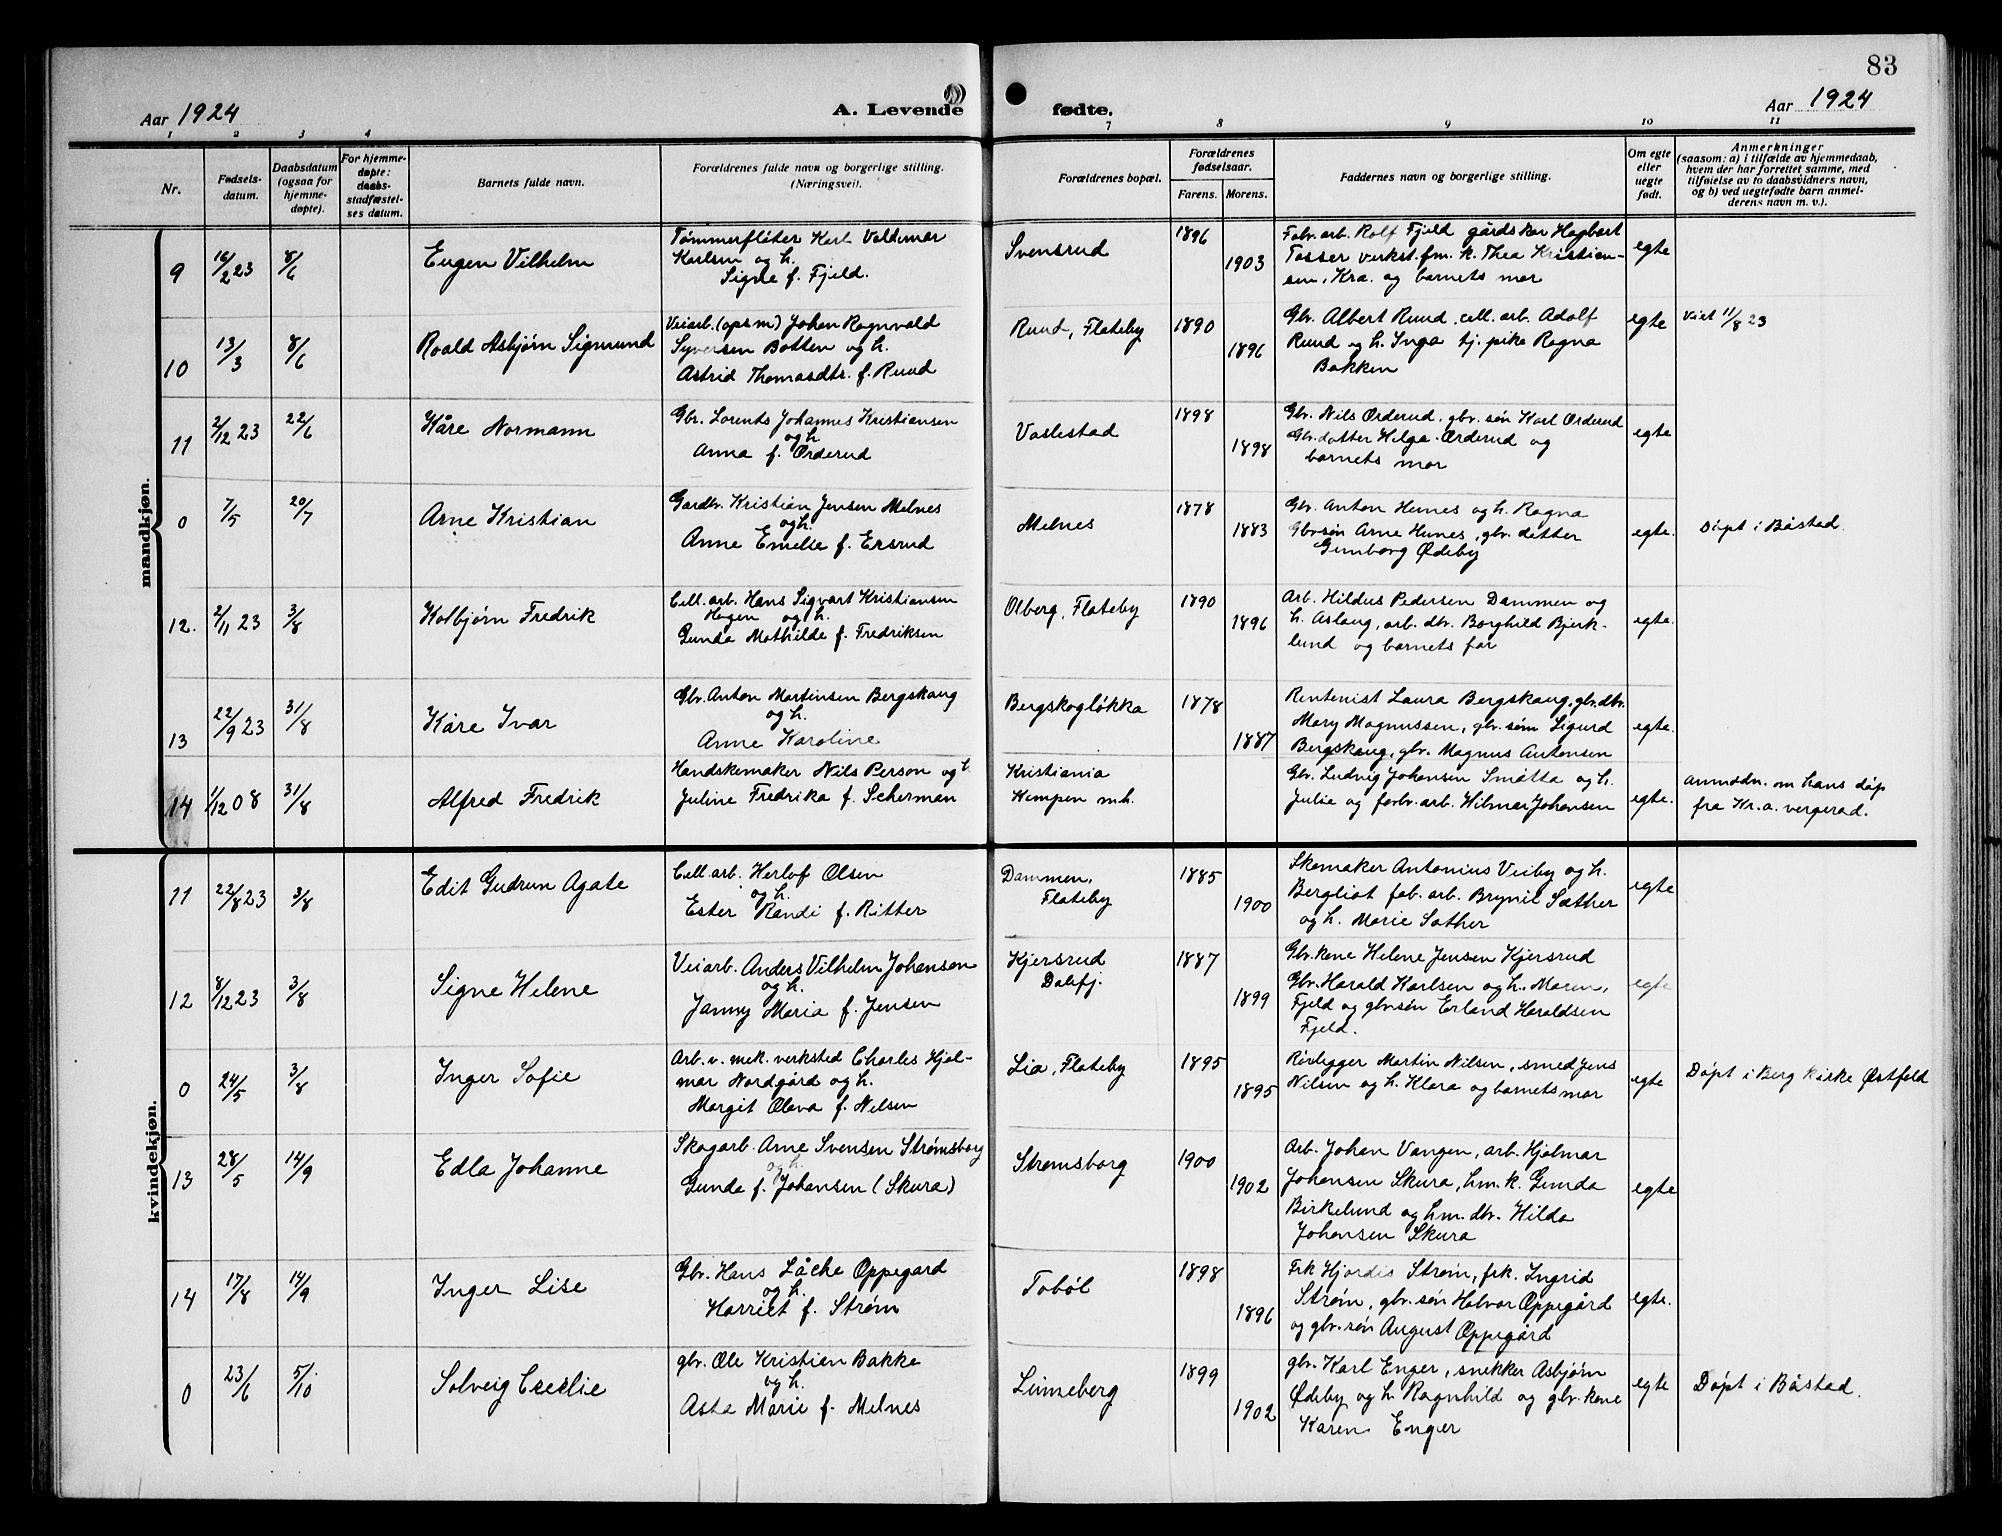 83
Aar 1924
A. Levende fødte.
Aar 1924
1 2 3 4 7 8 9 10 11
Nr.
Fødsels-
datum.
Daabsdatum
(ogsaa for
hjemme-
døpte).
For hjemme-
døpte:
daabs-
stadfæstel-
ses datum.
Barnets fulde navn.
Forældrenes fulde navn og borgerlige stilling.
(Næringsvei).
Forældrenes bopæl.
Forældrenes
fødselsaar.
Farens. Morens.
Faddernes navn og borgerlige stilling.
Om egte
eller
uegte
født.
Anmerkninger
(saasom: a) i tilfælde av hjemmedaab,
hvem der har forrettet samme, med
tilføielse av to daabsvidners navn,
og b) ved uegtefødte barn anmel-
derens navn m. v.).
mandkjøn.
9 16/2 23 8/6 Eugen Vilhelm
Tømmerfløter Karl Valdemar
Karlsen og h.
Signe f. Fjeld.
Svensrud 1896 1903
Fabr. arb. Rolf Fjeld gårdsker Hagbart
Tosser verkst.fm. k. Thea Kristian-
sen, Kra. og barnets mor
egte
10 13/3 8/6 Roald Asbjørn Sigmund
Veiarb. (opsm) Johan Ragnvald
Syversen Botten og h.
Astrid Thomasdtr. f. Ruud
Ruud, Flateby 1890 1896
Gbr. Albert Ruud, cell. arb. Adolf
Ruud og h. Inga tj. pike Ragna
Bakken
egte Viet 11/8 23
11 2/12 23 22/6 Kåre Normann
Gbr. Lorents Johannes Kristiansen
og h
Anna f. Orderud
Vaslestad 1898 1898
Gbr. Nils Orderud, gbr. søn Karl Orderud
Gbr. datter Helga Orderud og
barnets mor
egte
0 7/5 20/7 Arne Kristian
Gardbr. Kristian Jensen Melnes
og h.
Anne Emelie f. Ersrud
Melnes 1878 1883
Gbr. Anton Hunes og h. Ragna
Gbr søn Arne Hunes, gbr. datter
Gunborg Ødeby
egte. Døpt i Båstad.
12. 2/11 23 3/8 Kolbjørn Fredrik
Cell. arb. Hans Sigvart Kristiansen
Hagen og h.
Gunda Mathilde f. Fredriksen
Olberg, Flateby 1890 1896
Arb. Hildus Pedersen Dammen og
h. Aslaug, arb. dtr. Borghild Bjerk-
lund og barnets far
egte.
13 22/9 23 31/8 Kåre Ivar
Gbr. Anton Martinsen Bergskaug
og h.
Anne Karoline
Bergskogløkka 1878 1887
Rentenist Laura Bergskaug, gbr. dtr.
Mary Magnussen, gbr. søn Sigurd
Bergskaug, gbr. Magnus Antonsen
egte.
14 1/12 08 31/8 Alfred Fredrik
Handskemaker Nils Person og h
Juline Fredrika f. Scherman
Kristiania
Kempen m.h.
Gbr. Ludvig Johansen Småtta og h.
Julie og farbr. arb. Hilmar Johansen
egte. Anmodn. om hans døp
fra Kr.a. vergerad.
kvindekjøn.
11 22/8 23 3/8 Edit Gudrun Agate
Cell. arb. Herlof Olsen
og h.
Ester Randi f. Ritter
Dammen,
Flateby 1885 1900
Skomaker Antonius Veiby og h.
Bergliot fab. arb. Brynil Sæther
og h. Marie Sæther
egte
12 8/12 23 3/8 Signe Helene
Veiarb. Anders Vilhelm Johansen
og h.
Janny Maria f. Jensen
Kjersrud
Dalefj. 1887 1899
Gbr. kone Helene Jensen Kjersrud
Gbr. Harald Karlsen og h. Maren,
Fjeld og gbr søn Erland Haraldsen
Fjeld.
egte
0 24/5 3/8 Inger Sofie
Arb. v. mek. verksted Charles Hjal-
mar Nordgård og h.
Margit Olava f. Nilsen
Lia, Flateby 1895 1895
Rørlegger Martin Nilsen, smed Jens
Nilsen og h. Klara og barnets mor
egte Døpt i Berg Kirke Østfold
13 28/5 14/9 Edla Johanne
Skogarb. Arne Svensen Strømsborg
og h.
Gunda f. Johansen (Skura)
Strømsborg 1900 1902
Arb. Johan Vangen, arb. Hjalmar
Johansen Skura, hm. k. Gunda
Birkelund og hm. dtr. Hilda
Johansen Skura
egte
14 17/8 14/9 Inger Lise
Gbr. Hans Låche Oppegard
og h.
Harriet f. Strøm
Tobøl 1898 1896
Frk Hjordis Strøm, frk. Ingrid
Strøm, gbr. søn Halvor Oppegård
og gbr. søn August Oppegård
egte.
0 23/6 5/10 Solveig Cecilie
gbr. Ole Kristian Bakke
og h.
Asta Marie f. Melnes
Linneberg 1899 1902
gbr. Karl Enger, snekker Asbjørn
Ødeby og h. Ragnhild og gbr. kone
Karen Enger
egte Døpt i Båstad.